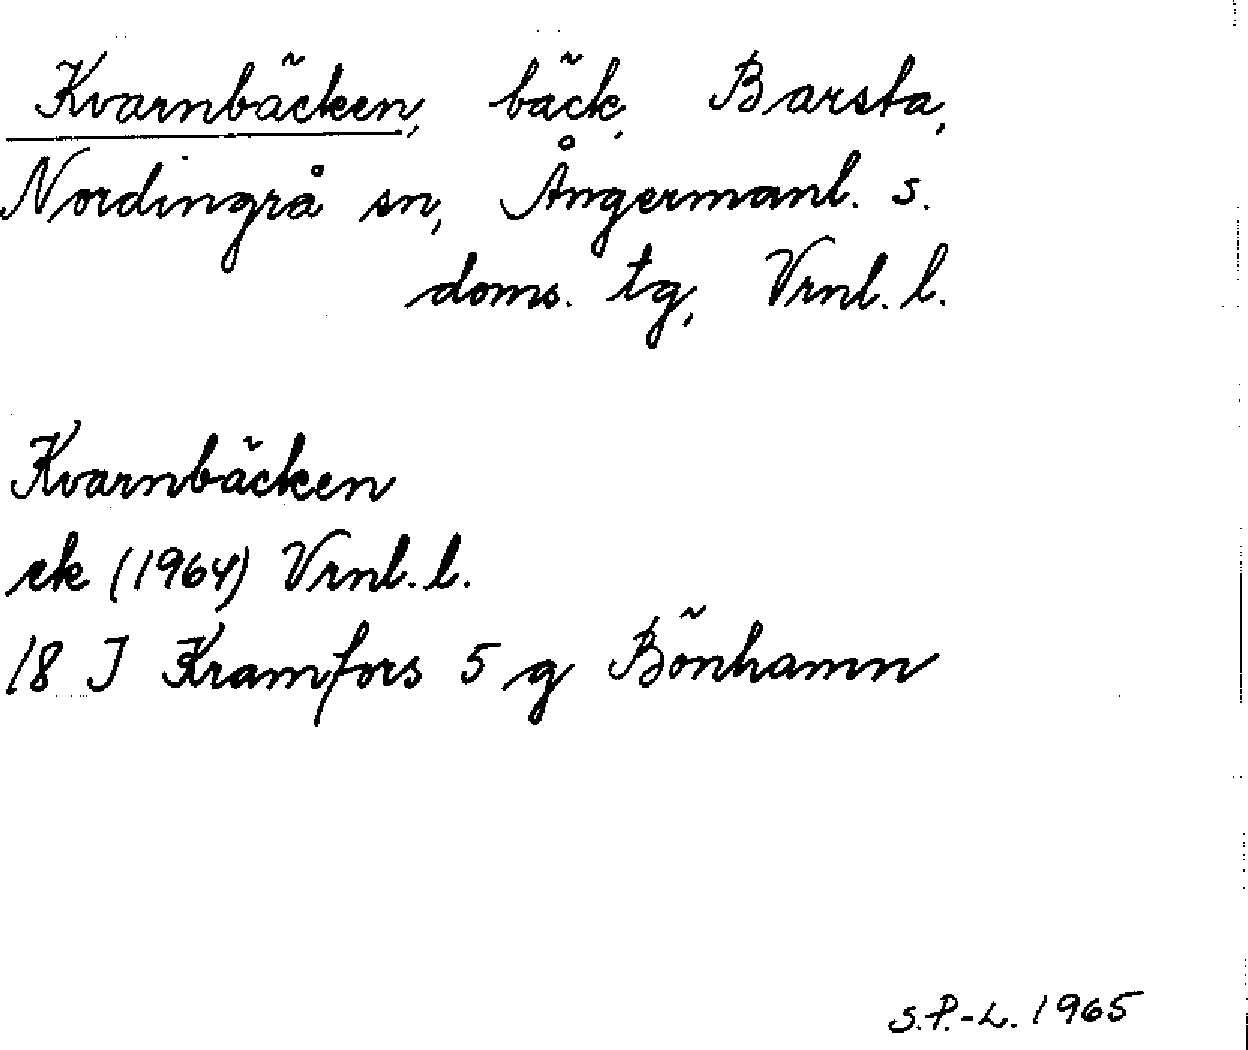 Kvarnbäcken, bäck, Barsta,
Nordingrå sn, Ångermanl. s.
doms. tg, Vrnl. l.
Kvarnbäcken
ek (1964) Vrnl. l.
18 J Kramfors 5 g Bönhamn
S.P.-L. 1965